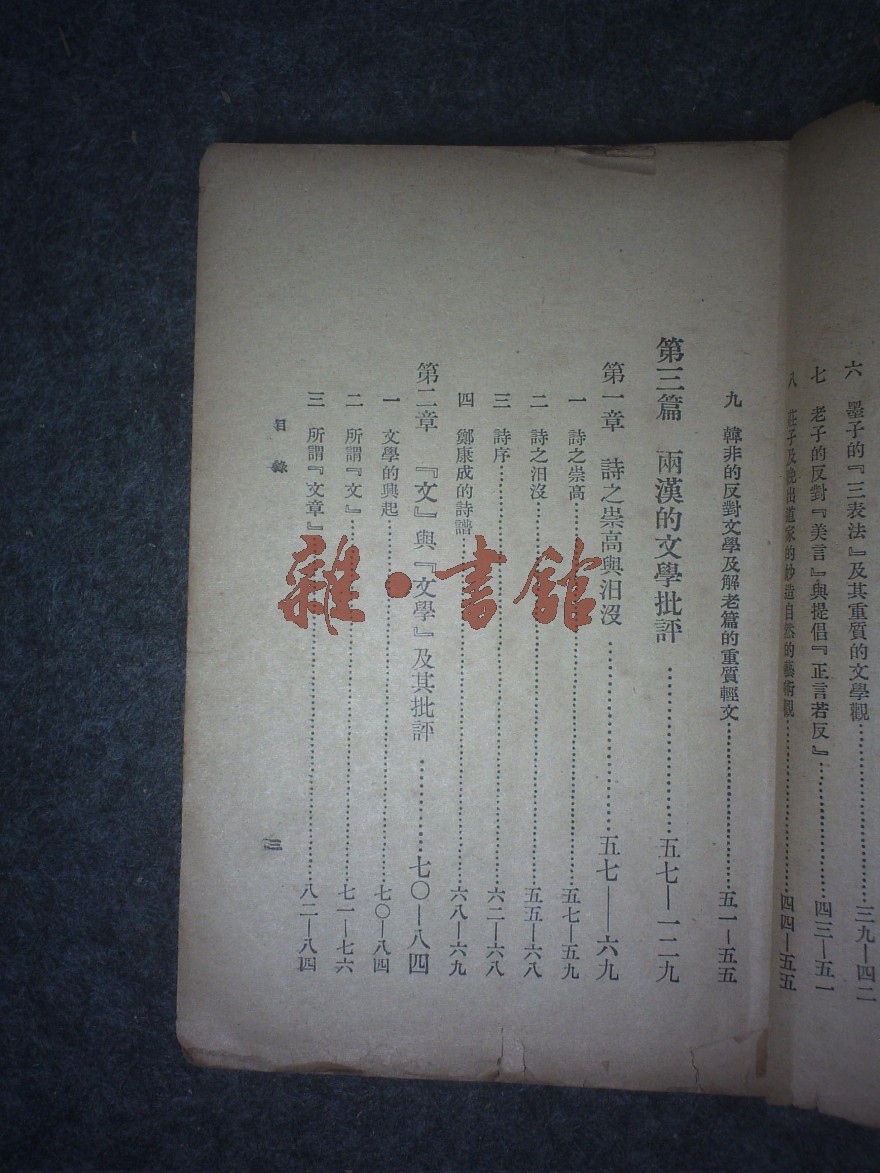 六 墨子的『三表法』及其重質的文學觀…………三九—四二
七 老子的反對『美言』與提倡『正言若反』…………四三—五一
八 莊子及說出道家的妙造自然的藝術觀…………四四—五五
九 韓非的反對文學及解老篇的重質輕文…………五一—五五
第三篇 兩漢的文學批評…………五七—一二九
第一章 詩之崇高與汨沒…………五七——六九
一 詩之崇高…………五七—五九
二 詩之汨沒…………五五—六八
三 詩序…………六二—六八
四 鄭康成的詩譜…………六八—六九
第二章 『文』與『文學』及其批評…………七〇—八四
一 文學的興起…………七〇—八四
二 所謂『文』…………七一—七六
三 所謂『文章』…………八二—八四
目錄
三
雜·書館